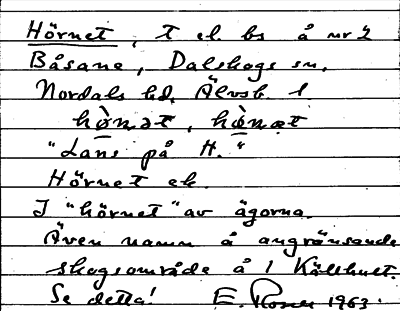 Hörnet, t el. bs å nr 2
Båsane, Dalskogs sn,
Nordals hd, Älvsb. l
"Lans på H."
Hörnet ek
I "hörnet" av ägorna.
Även namn å angränsande
skogsområde å 1 Källhult.
Se detta! E. Rosn 1963.